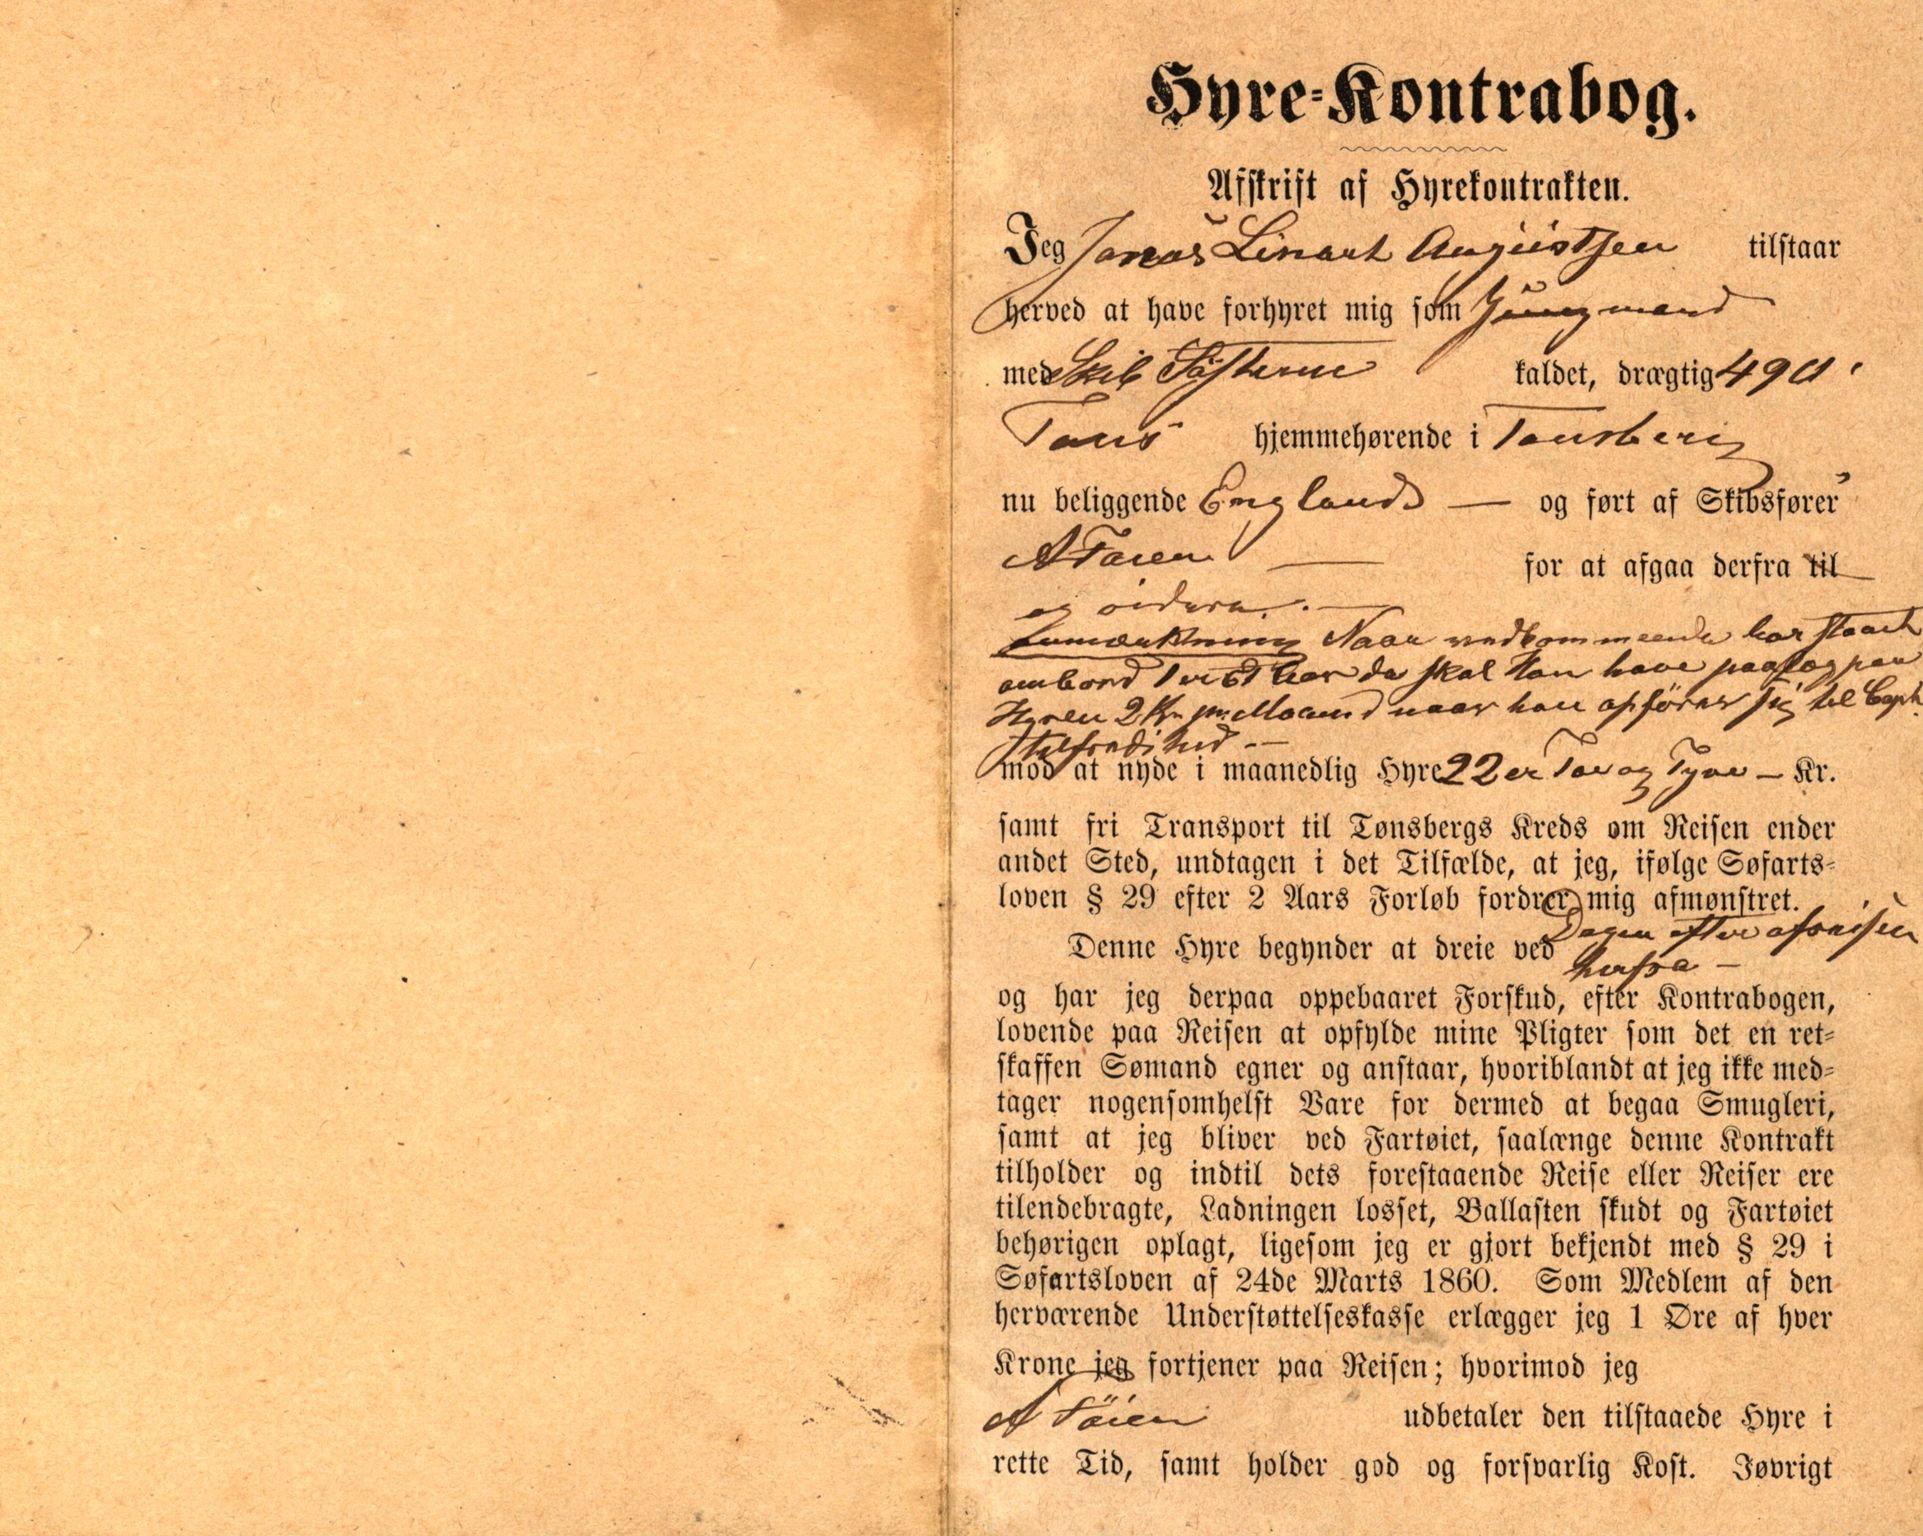 Hyre-Kontrabog.
Afskrift af Hyrekontrakten.
Jeg Jonas Linart Augustsen tilstaar
herved at have forhyret mig som Jungmand
med Skib Søstrene kaldet, drægtig 490
Tons hjemmehørende i Tønsberg
nu beliggende England — og ført af Skibsfører
A Føien — for at afgaa derfra til
og videre. —
Anmærkning Naar vedkommende har staaet
ombord 1 et Aar da skal Han have paalæg paa
Hyren 2 Kr. pr. Maaned naar han opfører sig til Capt.
tilfredshed —
mod at nyde i maanedlig Hyre 22 er To og Tyve — Kr.
samt fri Transport til Tønsbergs Kreds om Reisen ender
andet Sted, undtagen i det Tilfælde, at jeg, ifølge Søfarts-
loven § 29 efter 2 Aars Forløb fordrer mig afmønstret.
Denne Hyre begynder at dreie ved Dagen efter afreisen
herfra —
og har jeg derpaa oppebaaret Forskud, efter Kontrabogen,
lovende paa Reisen at opfylde mine Pligter som det en ret-
skaffen Sømand egner og anstaar, hvoriblandt at jeg ikke med-
tager nogensomhelst Vare for dermed at begaa Smugleri,
samt at jeg bliver ved Fartøiet, saalænge denne Kontrakt
tilholder og indtil dets forestaaende Reise eller Reiser ere
tilendebragte, Ladningen losset, Ballasten skudt og Fartøiet
behørigen oplagt, ligesom jeg er gjort bekjendt med § 29 i
Søfartsloven af 24de Marts 1860. Som Medlem af den
herværende Understøttelseskasse erlægger jeg 1 Øre af hver
Krone jeg fortjener paa Reisen; hvorimod jeg
A Föien udbetaler den tilstaaede Hyre i
rette Tid, samt holder god og forsvarlig Kost. Iøvrigt